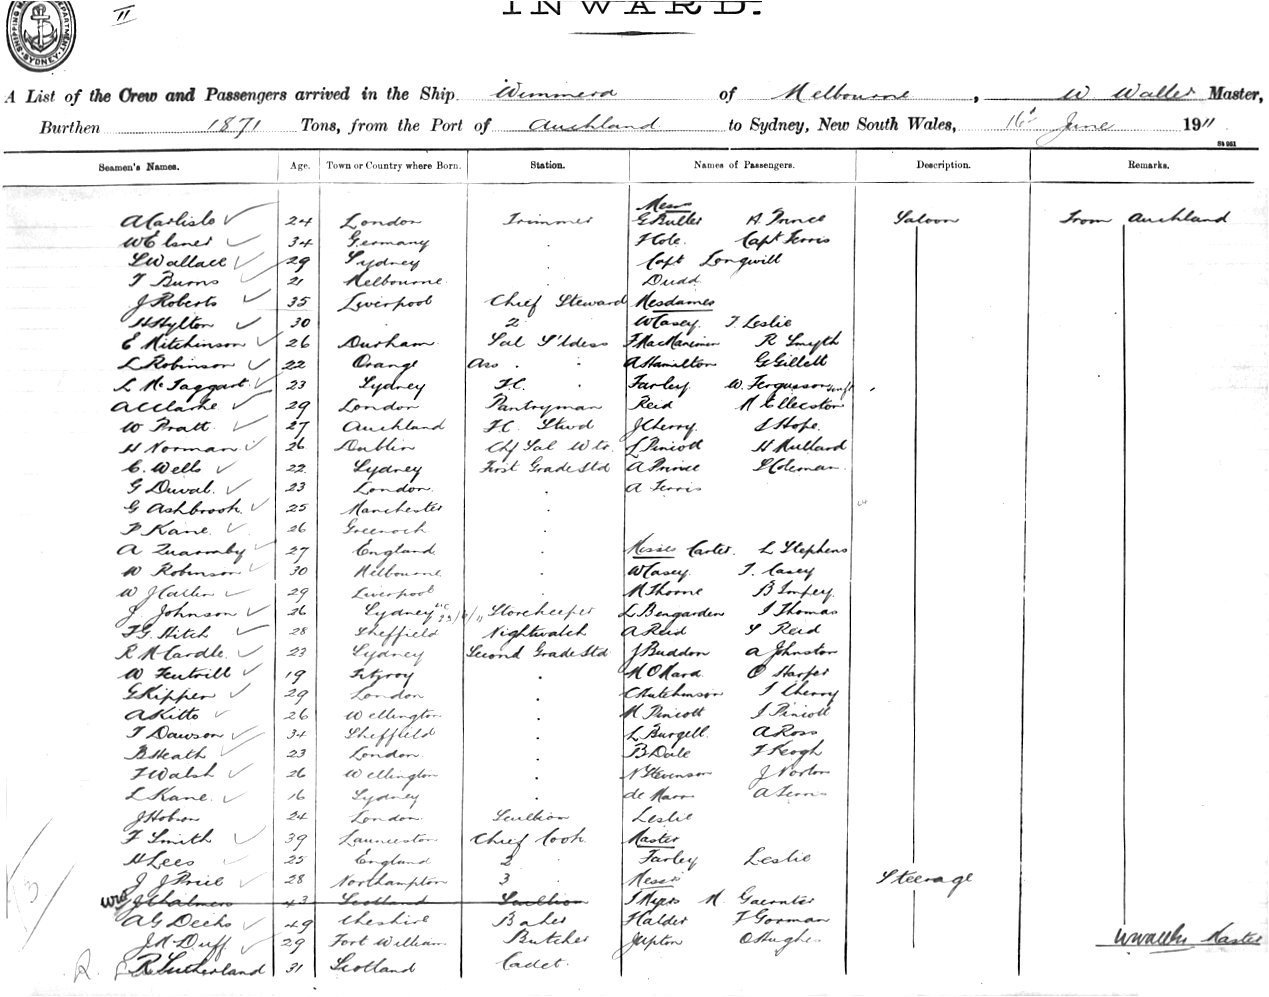 II
INWARD.
A List of the Crew and Passengers arrived in the Ship Wimmera of Melbourne, W Waller Master,
Burthen 1871 Tons, from the Port of Auckland to Sydney, New South Wales, 16 June 1911
Seamen's Names. Age. Town or Country where Born. Station. Names of Passengers. Description. Remarks.
Mess
A Carlisle 24 London Trimmer G Butler A Prince Saloon From Auckland
W Elsner 34 Germany F Cole Capt Ferris
S Wallace 29 Sydney Capt Longwill
T Burns 21 Melbourne Dudd
J Roberts 35 Liverpool Chief Steward Mesdames
H Hylton 30 2 W Casey T Leslie
E Mitchinson 26 Durham Sal S'dess R Smyth
L Robinson 22 Orange Ass A Hamilton G Gillett
L McTaggart 23 Sydney F.C. Farley W. Fergusson
A Clarke 29 London Pantryman Reid M Elleston
W Pratt 27 Auckland F.C. Stwd J Cherry S Hope
H Norman 26 Dublin Chf Sal Wtr L Pincott H Mullard
C. Wells 22 Sydney First Grade Std A Prince S Coleman
G Duval 23 London A Ferris
G Ashbrook 25 Manchester
P Kane 26 Greenock
A Quarmby 27 England Misses Carter. L Stephens
W Robinson 30 Melbourne W Casey T. Casey
W J Carlin 29 Liverpool M Thorne B Impey
J Johnson 26 Sydney Storekeeper L Bengarden I Thomas
F.G. Hitch 28 Sheffield Nightwatch A Reid S Reid
R McCardle 23 Sydney Second Grade Std J Buddon A Johnston
W Fentrill 19 Fitzroy M OHara O Harper
G Kipper 29 London C Hutchinson I Cherry
A Kitto 26 Wellington M Pincott I Pincott
T Dawson 34 Sheffield L Burgell A Ross
B Heath 23 London B Dale F Keogh
F Walsh 26 Wellington N Stevenson J Norton
L Kane 16 Sydney A Ferris
J Hobson 24 London Scullion Leslie
F Smith 39 Launceston Chief Cook Master
H Lees 25 England 2 Farley Leslie
J J Price 28 Northampton 3 Messrs Steerage
J Chalmers 43 Scotland Scullion S Myers M Gaernter
A G Dechs 49 Cheshire Baker Halder F Gorman
J M Duff 29 Fort William Butcher Jupton O Hughes W Waller Master
R. R Sutherland 31 Scotland Cadet